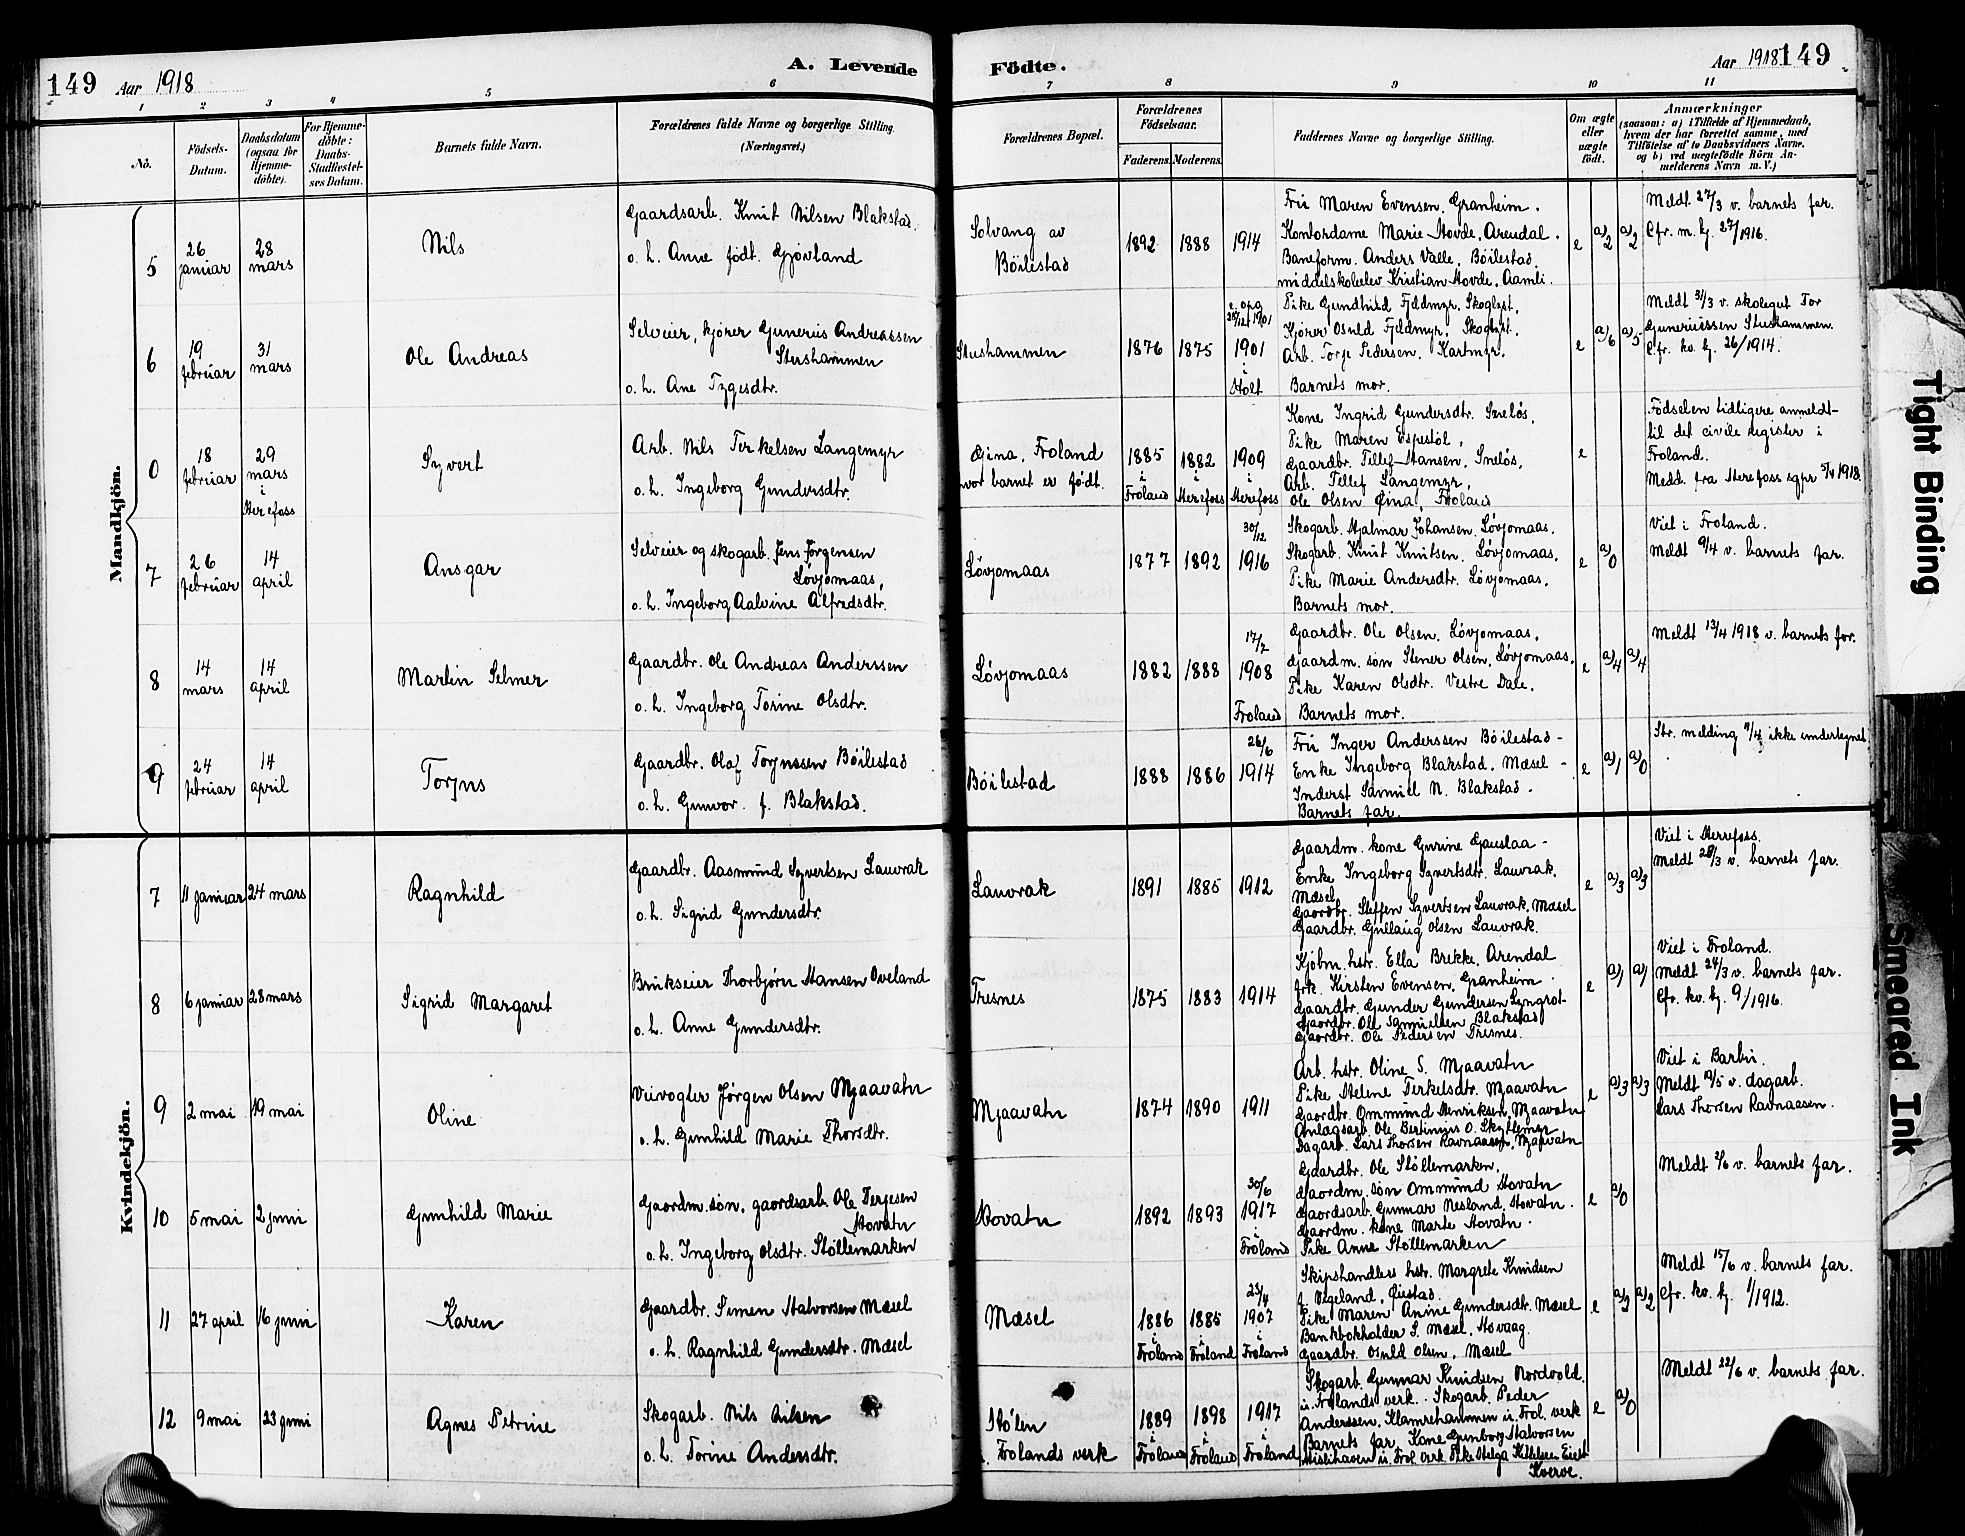 149 Aar 1918 A. Levende
Födte. Aar 1918 149
1 2 3 4 5 6
7 8 9 10 11
No.
Födsels-
Datum.
Daabsdatum
(ogsaa for
Hjemme-
döbte).
For Hjemme-
döbte:
Daabs-
Stadfestel-
ses Datum.
Barnets fulde Navn.
Forældrenes fulde Navne og borgerlige Stilling.
(Næringsvei.)
Forældrenes Bopæl.
Forældrenes
Födselsaar.
Faderens. Moderens.
Faddernes Navne og borgerlige Stilling.
Om ægte
eller
uægte
födt.
Anmærkninger
(saasom: a) i Tilfælde af Hjemmedaab,
hvem der har forrettet samme, med
Tilföielse af to Daabsvidners Navne,
og b) ved uægtefödte Börn An-
melderens Navn m. V.)
Mandkjön.
5
26
januar
28
mars
Nils
Gaardsarb. Knut Nilsen Blakstad.
o. h. Anne født Gjövland
Solvang av
Böilestad
1892 1888 1914
Fru Maren Evensen, Granheim.
Kontordame Marie Hovde, Arendal.
Baneform. Anders Valle, Böilestad.
middelskoleelev Kristian Hovde, Aamli.
e a)2 a)2
Meldt 27/3 v. barnets far.
Cfr. m. kj. 27/1916.
6
19
februar
31
mars
Ole Andreas
Selveier, kjörer Gunerius Andreassen
Stushammen
o. h. Ane Tygesdtr.
Stushammen
1876 1875
1901
i
Holt
Pike Gundhild Fjeldmyr, Skoglyst.
Kjörer Osuld Fjeldmyr, Skoglyst.
Arb. Torje Pedersen, Kartmyr.
Barnets mor.
e a)6 a)5
Meldt 31/3 v. skolegut Tor
Guneriussen Stushammen.
Cfr. kv. kj. 26/1914.
0
18
februar
29
mars
i
Herefoss
Syvert
Arb. Nils Terkelsen Langemyr
o. h. Ingeborg Gundersdtr.
Gina, Froland
hvor barnet er födt.
1885
i
Froland
1882
i
Herefoss
1909
i
Herefoss
Kone Ingrid Gundersdtr. Sneløs.
Pike Maren Espestöl,
Gaardbr. Tellef Hansen, Sneløs,
Arb. Tellef Langemyr,
Ole Olsen Gina, Froland
e
Födselen tidligere anmeldt
til det civile register i
Froland.
Medd. fra Herefoss sgpr 5/4 1918
7
26
februar
14
april
Ansgar
Selveier og skogarb. Jens Jørgensen
Løvjomaas,
o. h. Ingeborg Aalvine Alfredsdtr.
Løvjomaas
1877 1892
30/12
1916
Skogarb. Hjalmar Johansen, Løvjomaas.
Skogarb. Knut Knutsen, Løvjomaas,
Pike Marie Andersdtr. Løvjomaas,
Barnets mor.
e a)0
Viet i Froland.
Meldt 9/4 v. barnets far.
8
14
mars
14
april
Martin Selmer
Gaardbr. Ole Andreas Anderssen
o. h. Ingeborg Torine Olsdtr.
Løvjomaas
1882 1888
17/7
1908
Froland
Gaardbr. Ole Olsen, Løvjomaas,
Gaardm. søn Stener Olsen, Løvjomaas,
Pike Karen Olsdtr. Vestre Dale,
Barnets mor.
e a)4 a)4
Meldt 13/4 1918 v. barnets far.
9
24
februar
14
april
Torjus
Gaardbr. Olaf Torjussen Böilestad
o. h. Gunvor f. Blakstad.
Böilestad
1888 1886
26/6
1914
Fru Inger Anderssen Böilestad -
Enke Ingeborg Blakstad, Mæsel -
Inderst Samuel N. Blakstad.
Barnets far.
e a)1 a)0
Str. melding 11/4 ikke undertegnet.
Kvindekjön.
7
11 januar 24 mars
Ragnhild
Gaardbr. Aasmund Syvertsen Lauvrak
o. h. Sigrid Gundersdtr.
Lauvrak
1891 1885 1912
Gaardm. kone Gurine Gauslaa -
Enke Ingeborg Syvertsdtr. Lauvrak,
Mæsel
Gaardbr. Steffen Syvertsen Lauvrak, Mæsel
Gaardbr. Gullaug Olsen Lauvrak.
e a)3 a)3
Viet i Herefoss.
Meldt 28/3 v. barnets far.
8
6 januar 28 mars
Sigrid Margaret
Brukseier Thorbjørn Hansen Oveland
o. h. Anne Gundersdtr.
Tresnes
1875 1883 1914
Kjøbm. hstr. Ella Brekke, Arendal
frk. Kirsten Evensen, Granheim.
Gaardbr. Gunder Gundersen Lyngrot -
Gaardbr. Ole Samuelsen Blakstad
Gaardbr. Ole Pedersen Tresnes.
e a)1 a)1
Viet i Froland.
Meldt 24/3 v. barnets far.
Cfr. kv. kj. 9/1916.
9
2 mai 19 mai
Oline
Veivogter Jørgen Olsen Mjaavatn
o. h. Gunhild Marie Thorsdtr.
Mjaavatn
1874 1890 1911
Arb. hstr. Oline S. Mjaavatn
Pike Helene Terkelsdtr. Mjaavatn
Gaardbr. Ommund Henriksen, Mjaavatn
Anlægsarb. Ole Bertinius O. Skyttemyr
Dagarb. Lars Thorsen Ravnaasen, Mjaavatn
e a)3 a)3
Viet i Barbu.
Meldt 19/5 v. dagarb.
Lars Thorsen Ravnaasen.
10
5 mai 2 juni
Gunhild Marie
Gaardm. søn, gaardsarb. Ole Terjesen
Hovatn
o. h. Ingeborg Olsdtr. Støllemarken
Hovatn
1892 1893
30/6
1917
i
Froland
Gaardbr. Ole Støllemarken,
Gaardm. søn Ommund Hovatn
Gaardsarb. Gunnar Nesland, Hovatn.
Gaardm. kone Marte Hovatn.
Pike Anne Støllemarken
e a)0
Meldt 2/6 v. barnets far.
11
27 april 16 juni
Karen
Gaardbr. Simen Halvorsen Mæsel
o. h. Ragnhild Gundersdtr. Mæsel
Mæsel
1886
i
Froland
1885
i
Froland
25/4
1907
i
Froland
Skipshandlers hstr. Margrete Knudsen
f. Vegeland,
Pike Maren Anine Gundersdtr. Mæsel
Bankbokholder S. Mæsel, Hovaag.
Gaardbr. Osuld Olsen, Mæsel
e a)2 a)2
Meldt 15/6 v. barnets far.
Cfr. kv. kj. 1/1912.
12
9 mai 23 juni
Agnes Petrine
Skogarb. Nils Nilsen
o. h. Torine Andersdtr.
Stølen
Frolands verk
1889
i
Froland
1898
i
Froland
1917
i
Froland
Skogarb. Gunnar Knudsen Nordvold.
u. Frolands verk. Skogarb. Peder
Anderssen, Klamrehammen u. Frol. verk
Barnets far, Kone Gunborg Halvorsen
u. Frol. verk. Pike Helga
Kverve.
e a)0
Meldt 22/6 v. barnets far.
Tight Binding
Smeared Ink